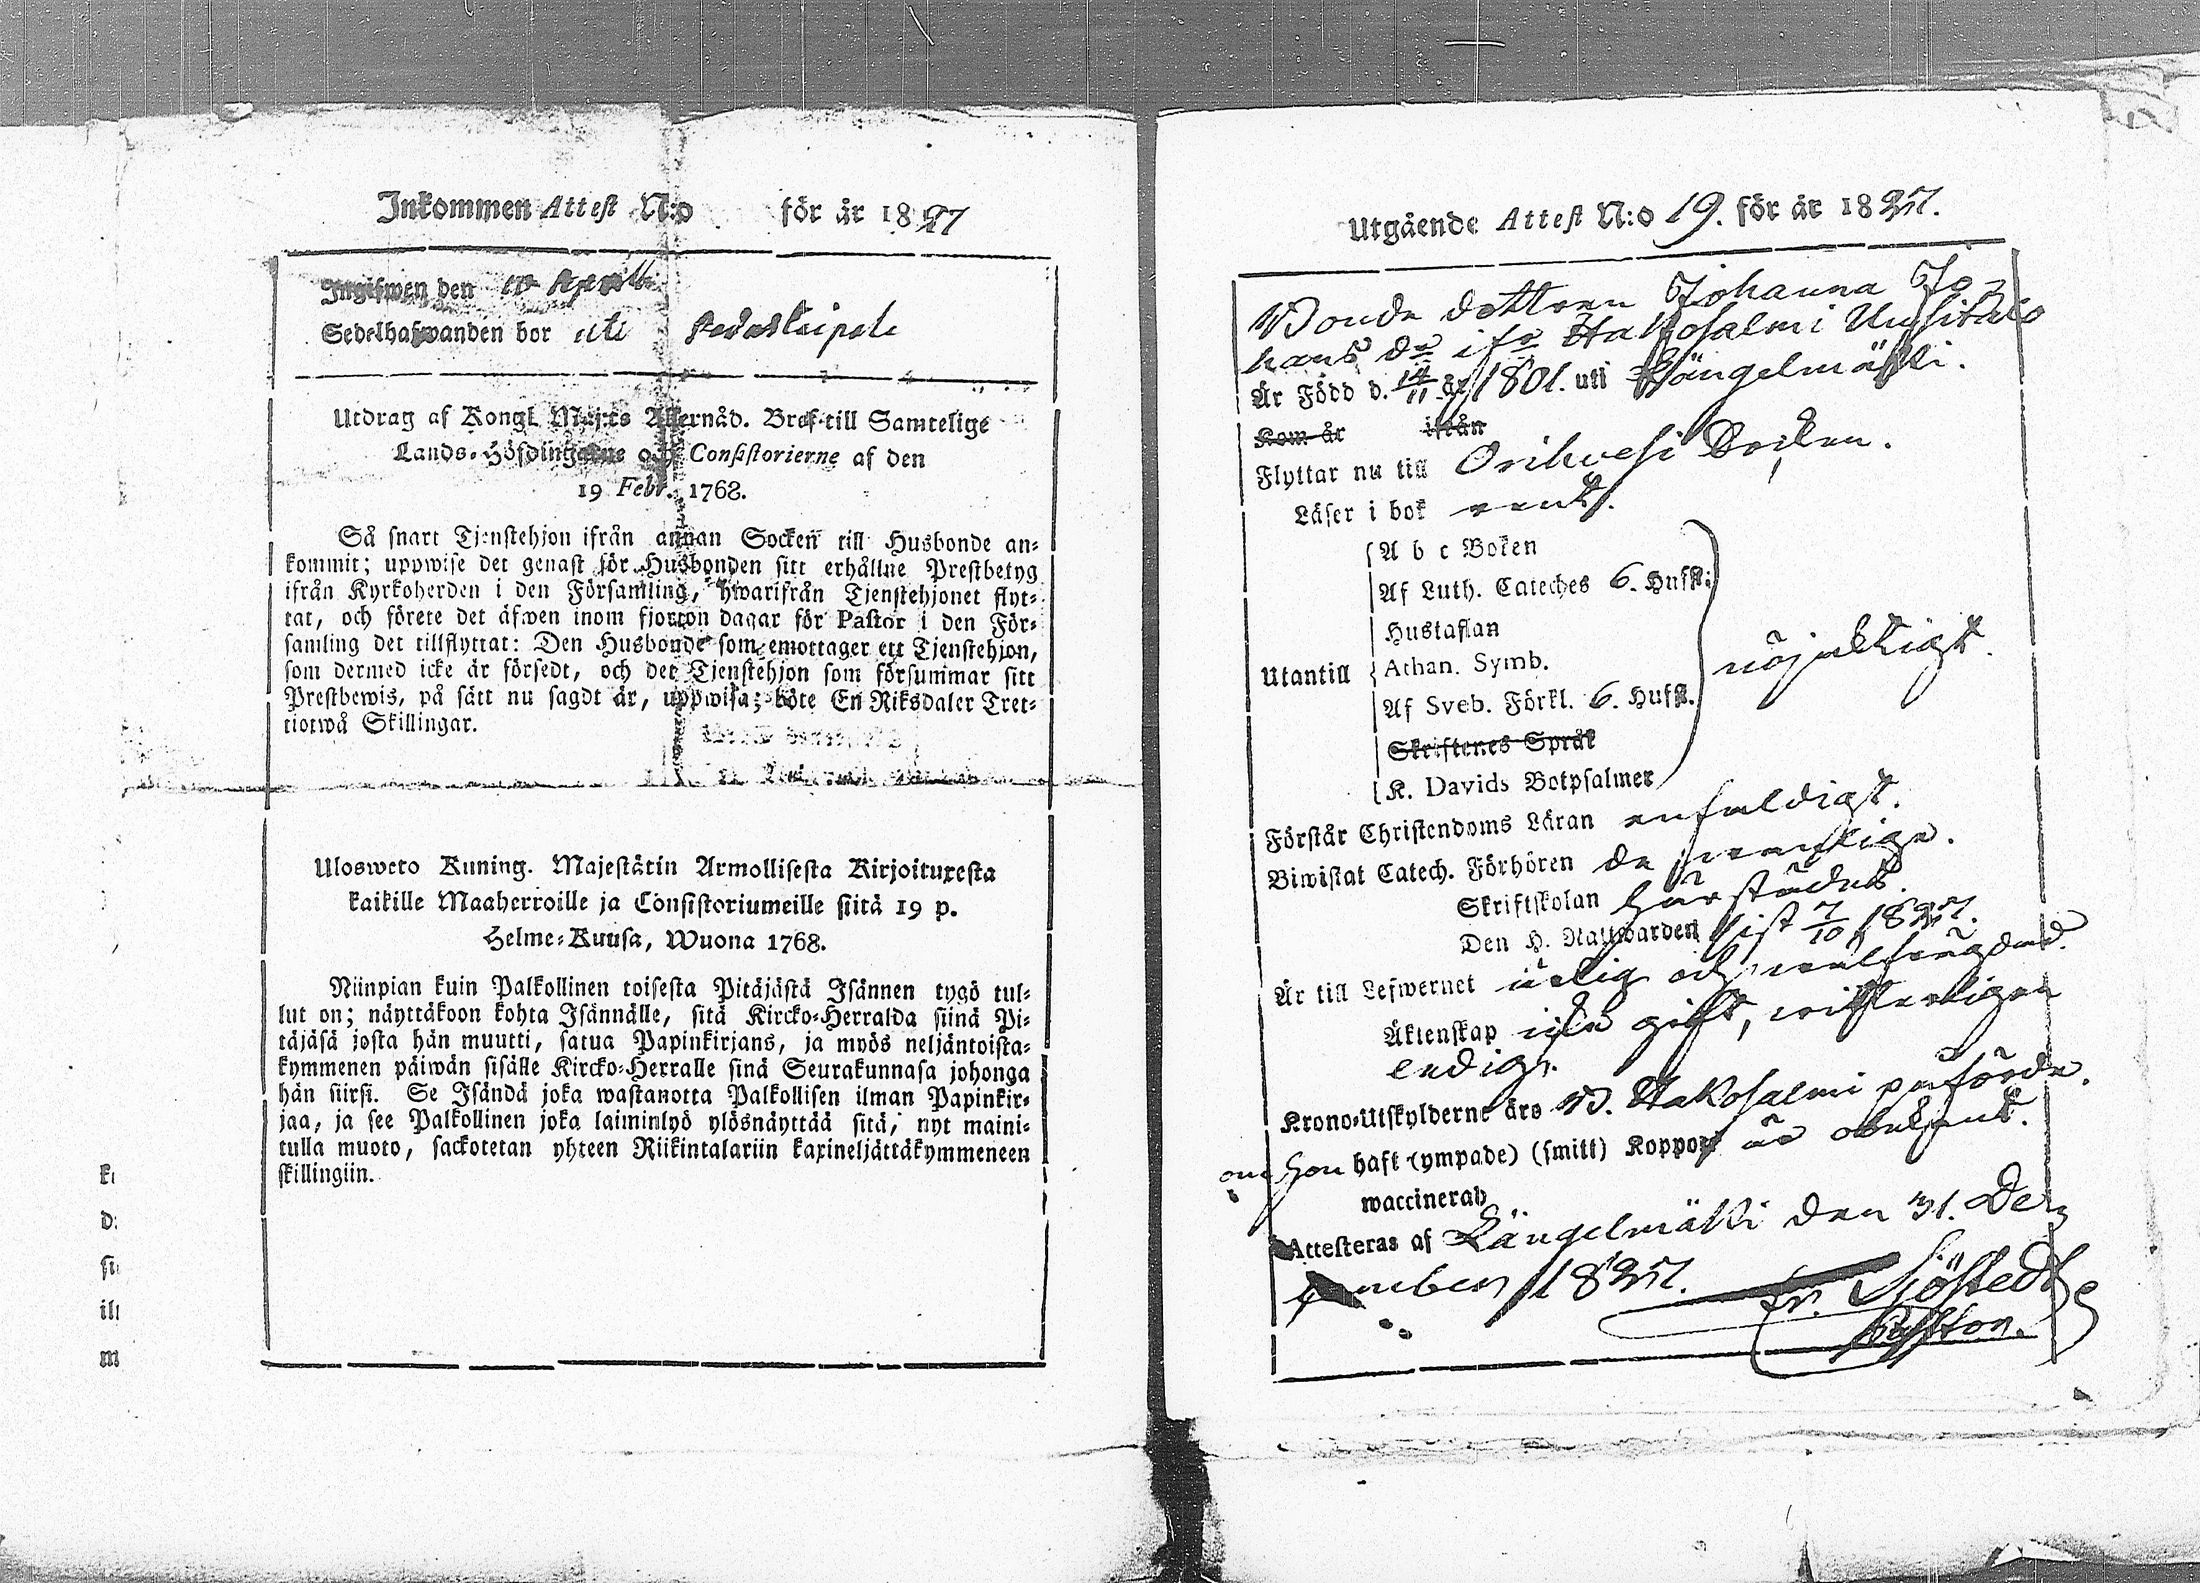 Inkommen Attest N:o för år 1827
Ingifwen den 10 April
Sedelhafwanden bor uti
Utdrag af Kongl. Maj:ts Allernåd. Bref till Samtelige
Lands-Höfdingarne och Consistorierne af den
19 Febr. 1768.
Så snart Tjenstehjon ifrån annan Socken till Husbonde an-
kommit; uppwise det genast för Husbonden sitt erhållne Prestbetyg
ifrån Kyrkoherden i den Församling, hwarifrån Tjenstehjonet flyt-
tat, och förete det äfwen inom fjorton dagar för Pastor i den För-
samling det tillflyttat: Den Husbonde som emottager ett Tjenstehjon,
som dermed icke är försedt, och det Tjenstehjon som försummar sitt
Prestbewis, på sätt nu sagdt är, uppwisa; böte En Riksdaler Tret-
tiotwå Skillingar.
Ulosweto Kuning. Majestätin Armollisesta Kirjoituxesta
kaikille Maaherroille ja Consistoriumeille siitä 19 p.
Helme-Kuusa, Wuona 1768.
Niinpian kuin Palkollinen toisesta Pitäjästä Isännen tygö tul-
lut on; näyttäkoon kohta Isännälle, sitä Kircko-Herralda siinä Pi-
täjäsä josta hän muutti, satua Papinkirjans, ja myös neljäntoista-
kymmenen päiwän sisälle Kircko-Herralle sinä Seurakunnasa johonga
hän siirsi. Se Isändä joka wastanotta Palkollisen ilman Papinkir-
jaa, ja see Palkollinen joka laiminlyö ylösnäyttää sitä, nyt maini-
tulla muoto, sackotetan yhteen Riikintalariin kaxineljättäkymmeneen
skillingiin.
Utgående Attest N:o 19. för år 1827.
Bonde dottren Johanna Jo-
hans dr ifr Hakosalmi Uusitalo
Är Född d. 14/11 år 1801. uti Längelmäki.
Kom år ifrån
Flyttar nu till Orihvesi Socken.
Läser i bok rent.
A b c Boken
Af Luth. Cateches 6. Hufst:
Hustaflan
Utantill Athan. Symb. nöjaktigt.
Af Sveb. Förkl. 6. Hufst.
Skriftenes Språk
K. Davids Botpsalmer
Förstår Christendoms Läran enfaldigt.
Biwistat Catech. Förhören de wanlige.
Skriftskolan härstädes.
Den H. Nattwarden sist 7/10 1827.
Är till Lefwernet ärlig och wälfrägdad.
Äktenskap icke gift, witterligen
ledig.
Krono-Utskylderne äro v. Hakosalmi påförde.
om hon haft (ympade) (smitt) Koppor är obekant.
waccinerad
Attesteras af Längelmäki den 31. De-
cember 1827. Fr. Sjöstedt